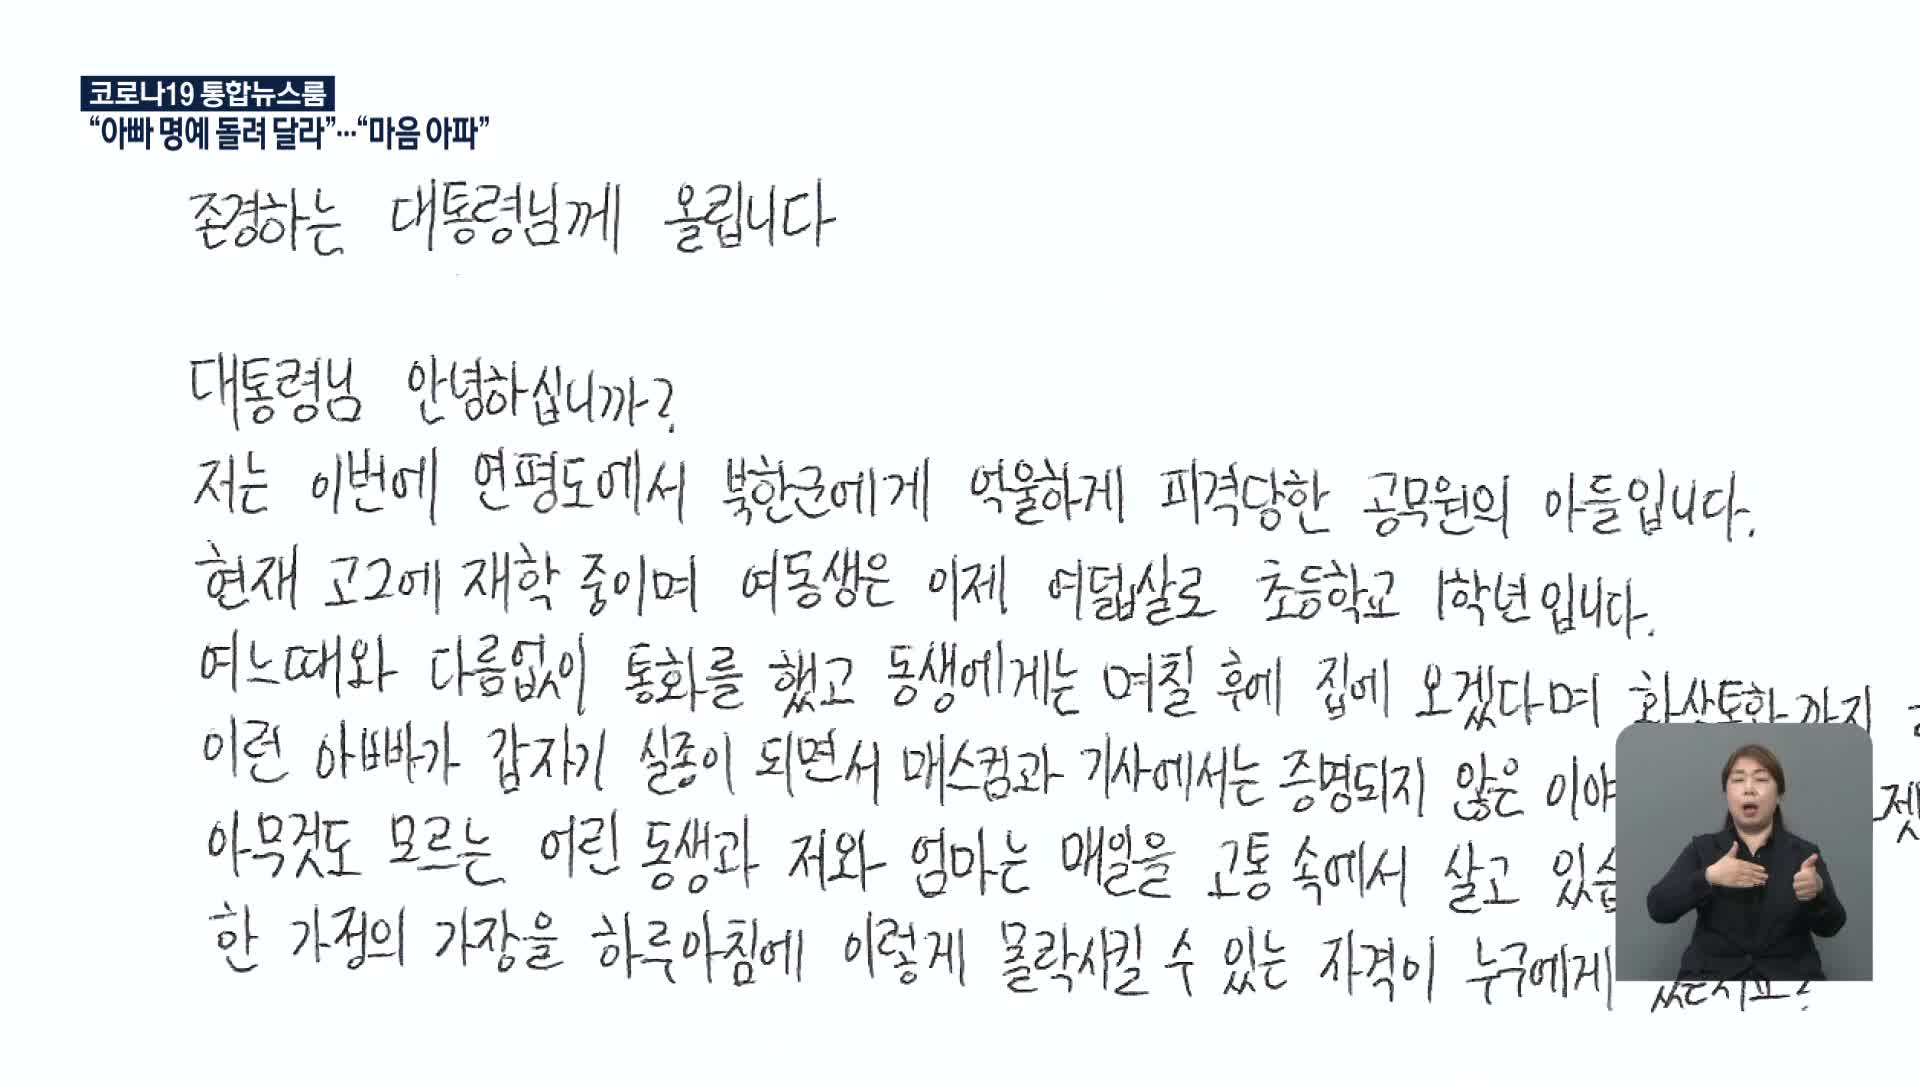 코로나19 통합뉴스룸
“아빠 명예 돌려 달라”…“마음 아파”
존경하는 대통령님께 올립니다
대통령님 안녕하십니까?
저는 이번에 연평도에서 북한군에게 억울하게 피격당한 공무원의 아들입니다.
현재 고2에 재학 중이며 여동생은 이제 여덟살로 초등학교 1학년입니다.
여느때와 다름없이 통화를 했고 동생에게는 며칠 후에 집에 오겠다며 화상통화까지
이런 아빠가 갑자기 실종이 되면서 매스컴과 기사에서는 증명되지 않은
아무것도 모르는 어린 동생과 저와 엄마는 매일을 고통 속에서 살고
한 가정의 가장을 하루아침에 이렇게 몰락시킬 수 있는 자격이 누구에게